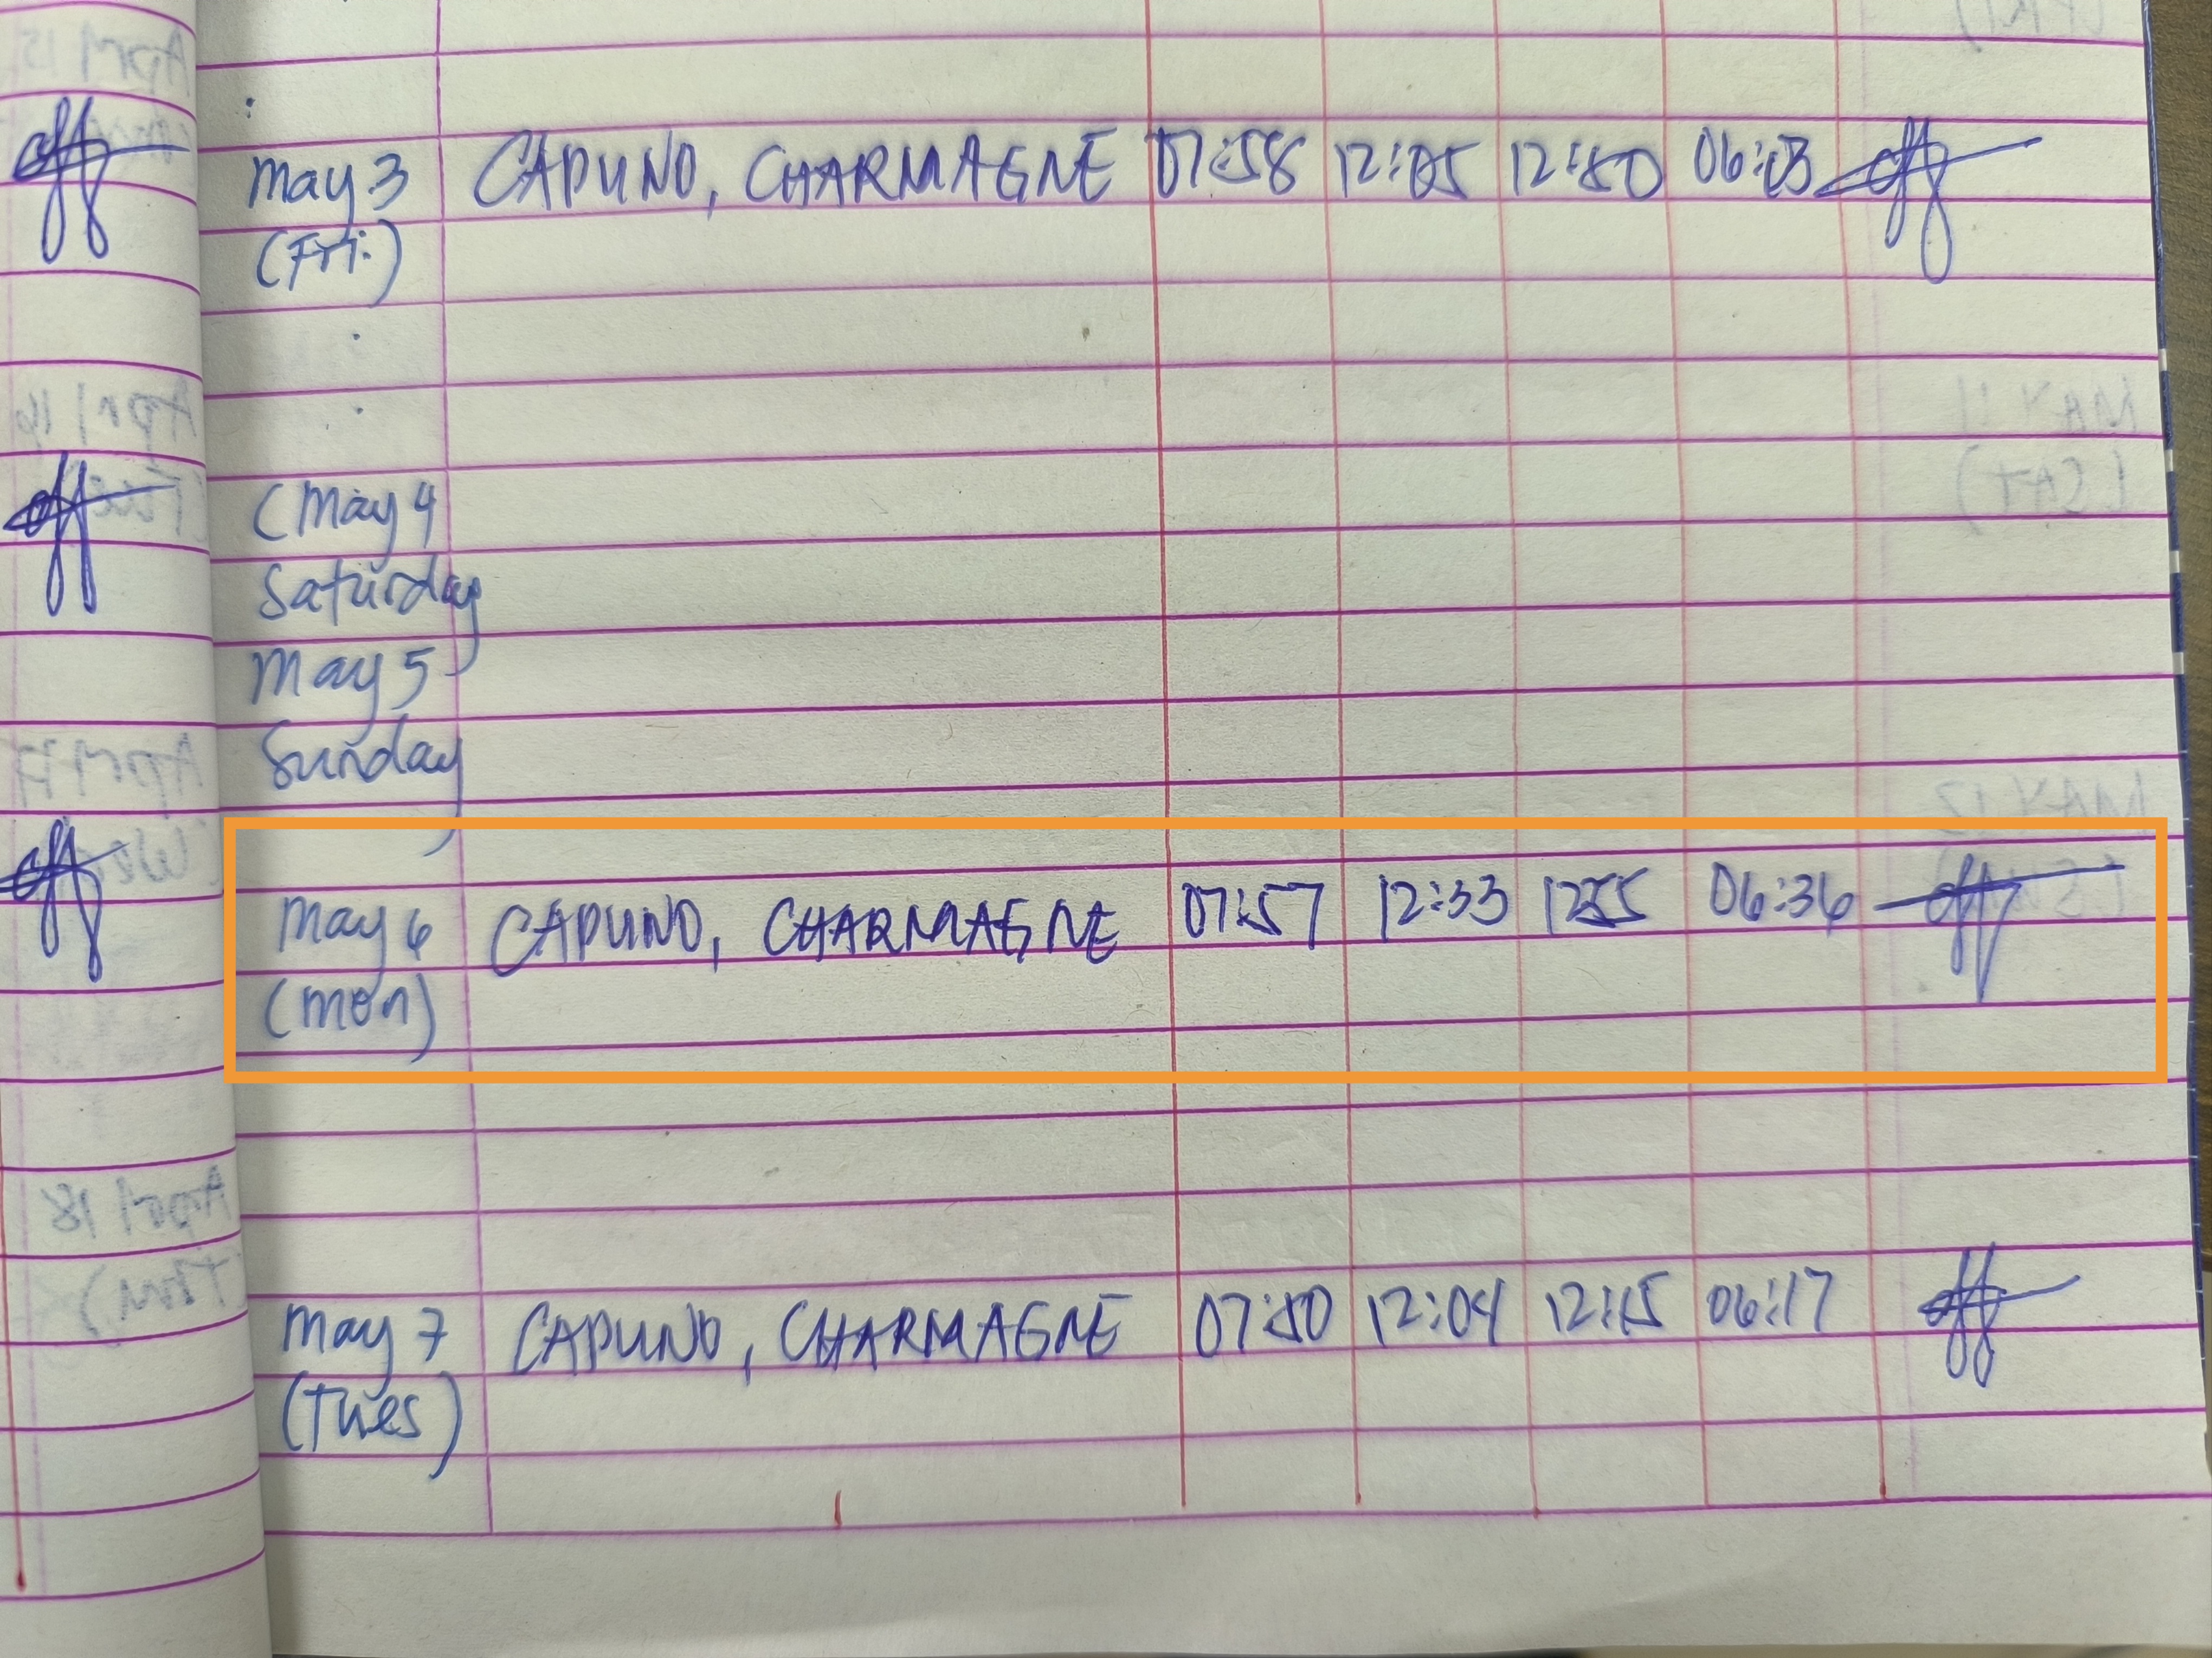 May 3 CAPUNO, CHARMAGNE 07:58 12:05 12:50 06:03
(Fri.)
(May 4
Saturday
May 5
Sunday
May 6 CAPUNO, CHARMAGNE 07:57 12:33 1255 06:36
(Mon)
May 7 CAPUNO, CHARMAGNE 07:50 12:04 12:15 06:17
(Tues)